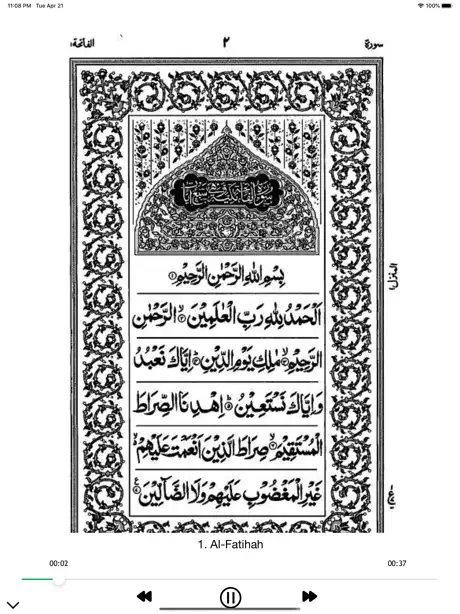 11:08 PM Tue Apr 21 100%
سورة ٢ الفاتحة
بِسْمِ اللهِ الرَّحْمٰنِ الرَّحِيْمِ ۝١
اَلْحَمْدُ لِلّٰهِ رَبِّ الْعٰلَمِيْنَ ۝٢ الرَّحْمٰنِ
الرَّحِيْمِ ۝٣ مٰلِكِ يَوْمِ الدِّيْنِ ۝٤ اِيَّاكَ نَعْبُدُ
وَاِيَّاكَ نَسْتَعِيْنُ ۝٥ اِهْدِنَا الصِّرَاطَ
الْمُسْتَقِيْمَ ۝٦ صِرَاطَ الَّذِيْنَ اَنْعَمْتَ عَلَيْهِمْ
غَيْرِ الْمَغْضُوْبِ عَلَيْهِمْ وَلَا الضَّآلِّيْنَ ۝٧
1. Al-Fatihah
00:02 00:37